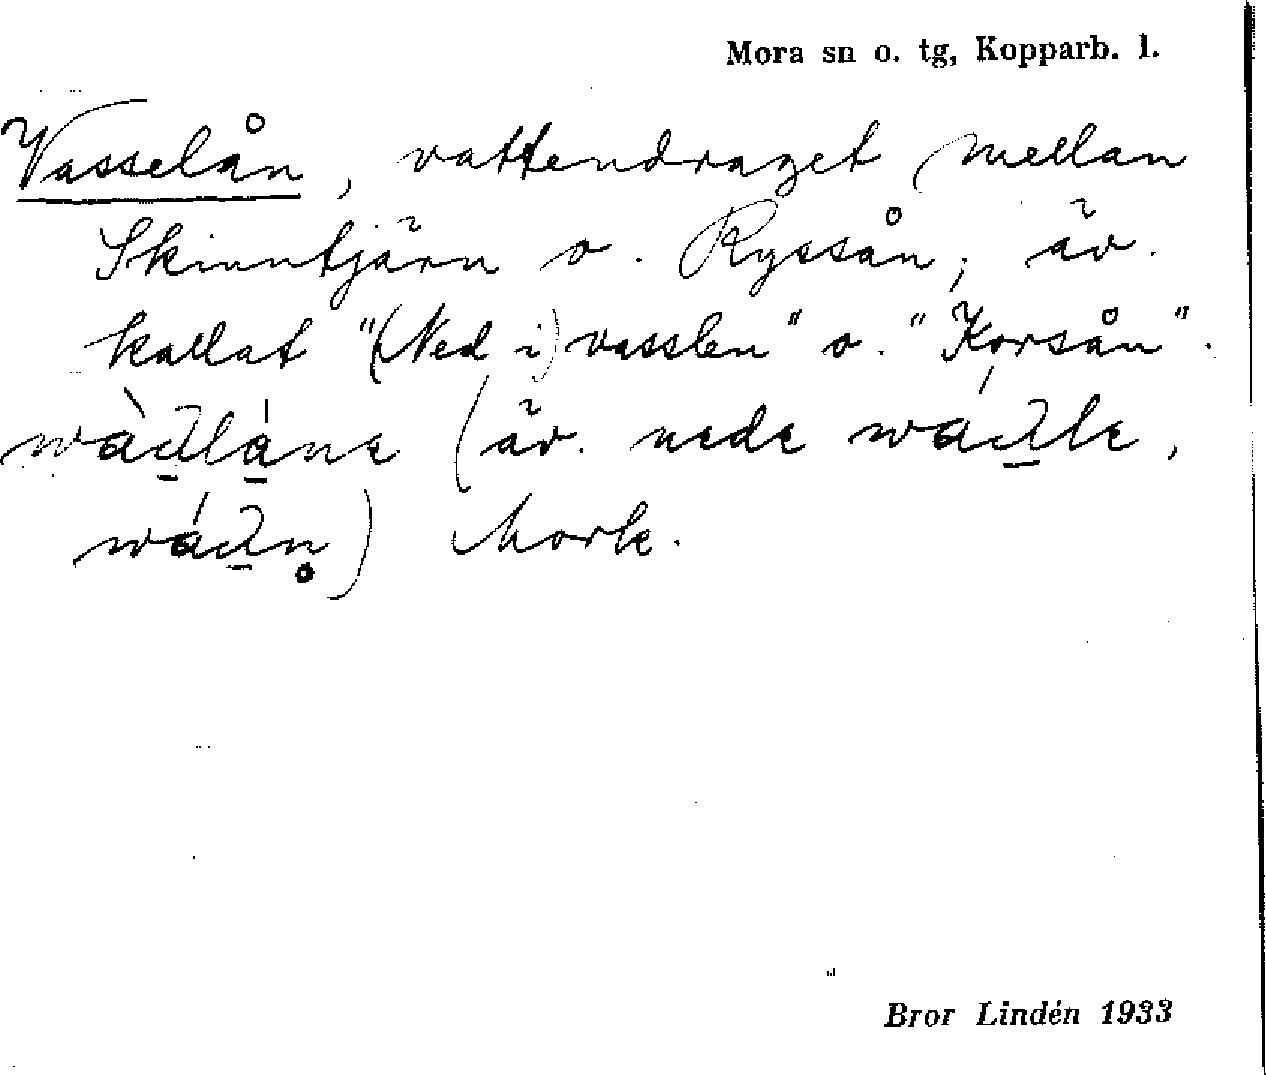 Mora sn o. tg, Kopparb. l.
Vasselån, vattendraget mellan
Skinntjärn o. Ryssån; äv.
kallat "(Ned i) vasslen" o. "Korsån".
(äv. nede
Bror Lindén 1933